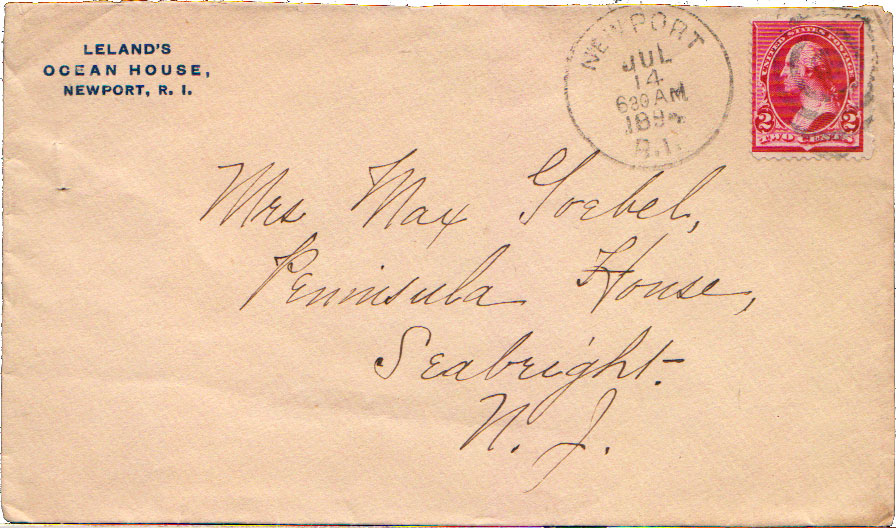 LELAND'S
OCEAN HOUSE,
NEWPORT, R. I.
NEWPORT
JUL
14
630 AM
R.I.
UNITED STATES POSTAGE
2 2
TWO CENTS
Mrs Max Goebel,
Peninsula House,
Seabright.
N. J.